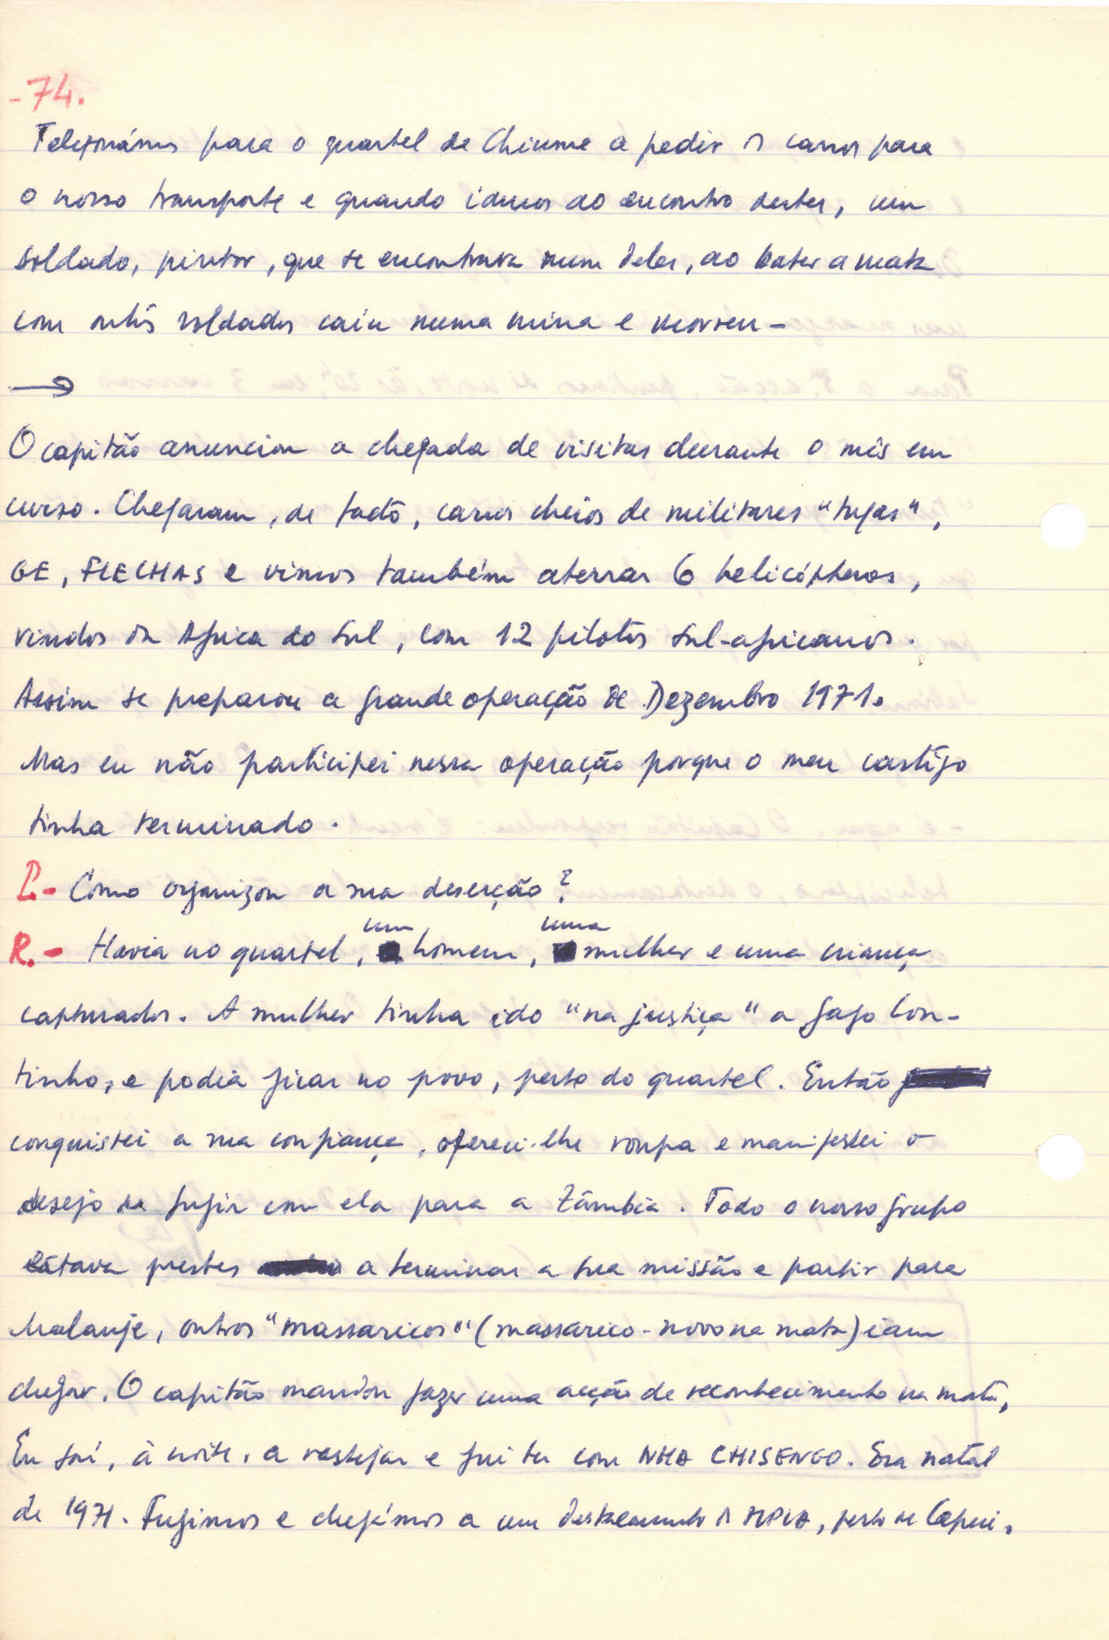 -74.
Telefonámos para o quartel de Chiume a pedir os carros para
o nosso transporte e quando íamos ao encontro destes, um
soldado, pintor, que se encontrava num deles, ao bater a mata
com outros soldados caiu numa mina e morreu -
→
O capitão anunciou a chegada de visitas durante o mês em
curso. Chegaram, de facto, carros cheios de militares "tugas",
GE, FLECHAS e vimos também aterrar 6 helicópteros,
vindos da Africa do Sul, com 12 pilotos sul-africanos.
Assim se preparou a grande operação de Dezembro 1971.
Mas eu não participei nessa operação porque o meu castigo
tinha terminado.
P.- Como organizou a sua deserção?
R.- Havia no quartel, um homem, uma mulher e uma criança
capturados. A mulher tinha ido "na justiça" a Gago Cou-
tinho, e podia ficar no povo, perto do quartel. Então
conquistei a sua confiança, ofereci-lhe roupa e manifestei o
desejo de fugir com ela para a Zâmbia. Todo o nosso grupo
estava prestes a terminar a sua missão e partir para
Malanje, outros "massaricos" (massarico - novo na mata) iam
chegar. O capitão mandou fazer uma acção de reconhecimento na mata,
Eu saí, à noite, a rastejar e fui ter com NHA CHISENGO. Era natal
de 1971. Fugimos e chegámos a um destacamento do MPLA, perto de